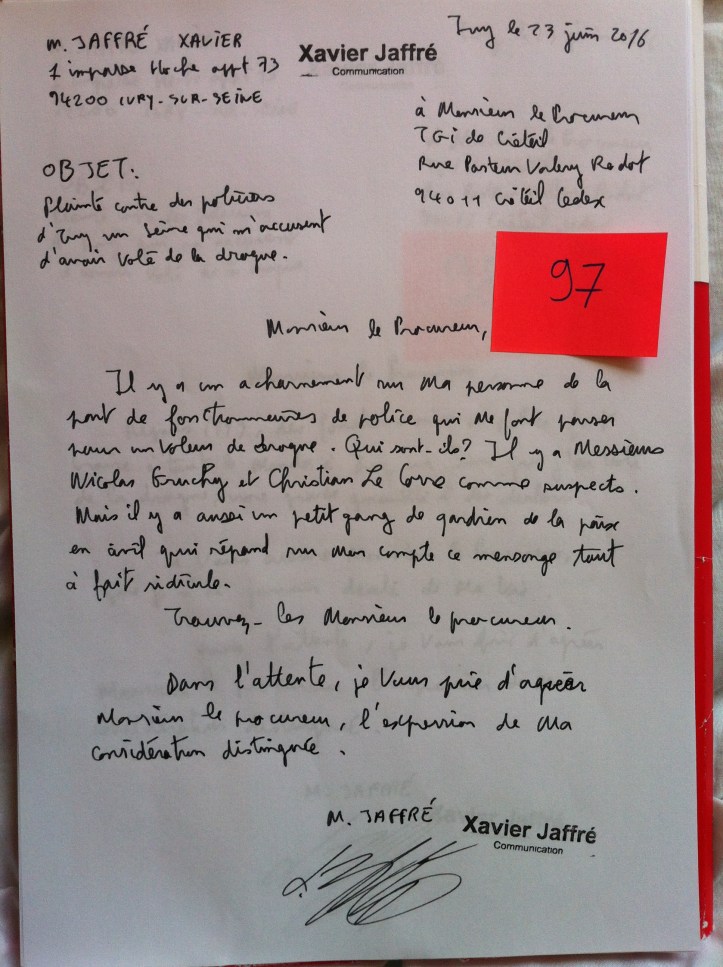 M. JAFFRÉ XAVIER
1 impasse Hoche appt 73
94200 IVRY-SUR-SEINE
Xavier Jaffré
Communication
Ivry le 23 juin 2016
à Monsieur le Procureur
TGI de Créteil
Rue Pasteur Valery Radot
94011 Créteil Cedex
OBJET:
Plainte contre des policiers
d'Ivry sur Seine qui m'accusent
d'avoir volé de la drogue.
97
Monsieur le Procureur,
Il y a un acharnement sur ma personne de la
part de fonctionnaires de police qui me font passer
pour un voleur de drogue. Qui sont-ils? Il y a Messieurs
Nicolas Gruchy et Christian Le Corre comme suspects.
Mais il y a aussi un petit gang de gardien de la paix
en civil qui répand sur mon compte ce mensonge tout
à fait ridicule.
Trouvez-les Monsieur le procureur.
Dans l'attente, je vous prie d'agréer
Monsieur le procureur, l'expression de ma
considération distinguée.
M. JAFFRÉ
Xavier Jaffré
Communication